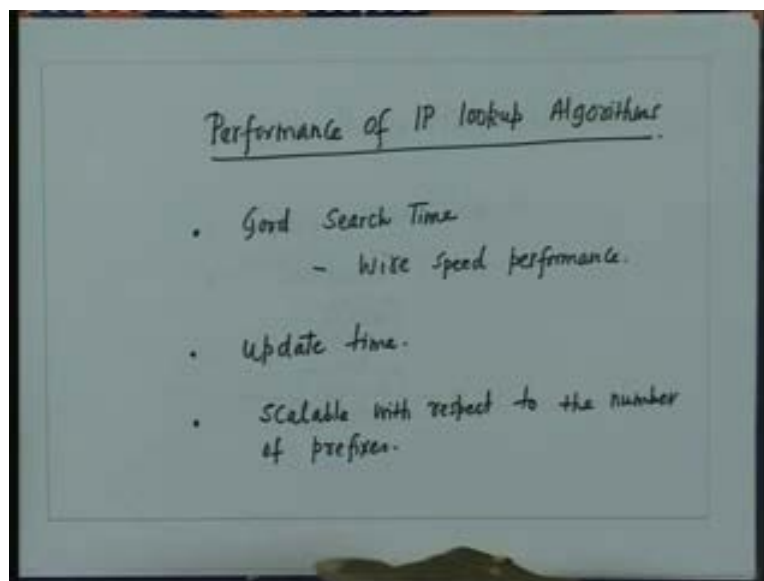 Performance of IP lookup Algorithms.
• Good Search Time
- Wire speed performance.
• Update time.
• Scalable with respect to the number
of prefixes.